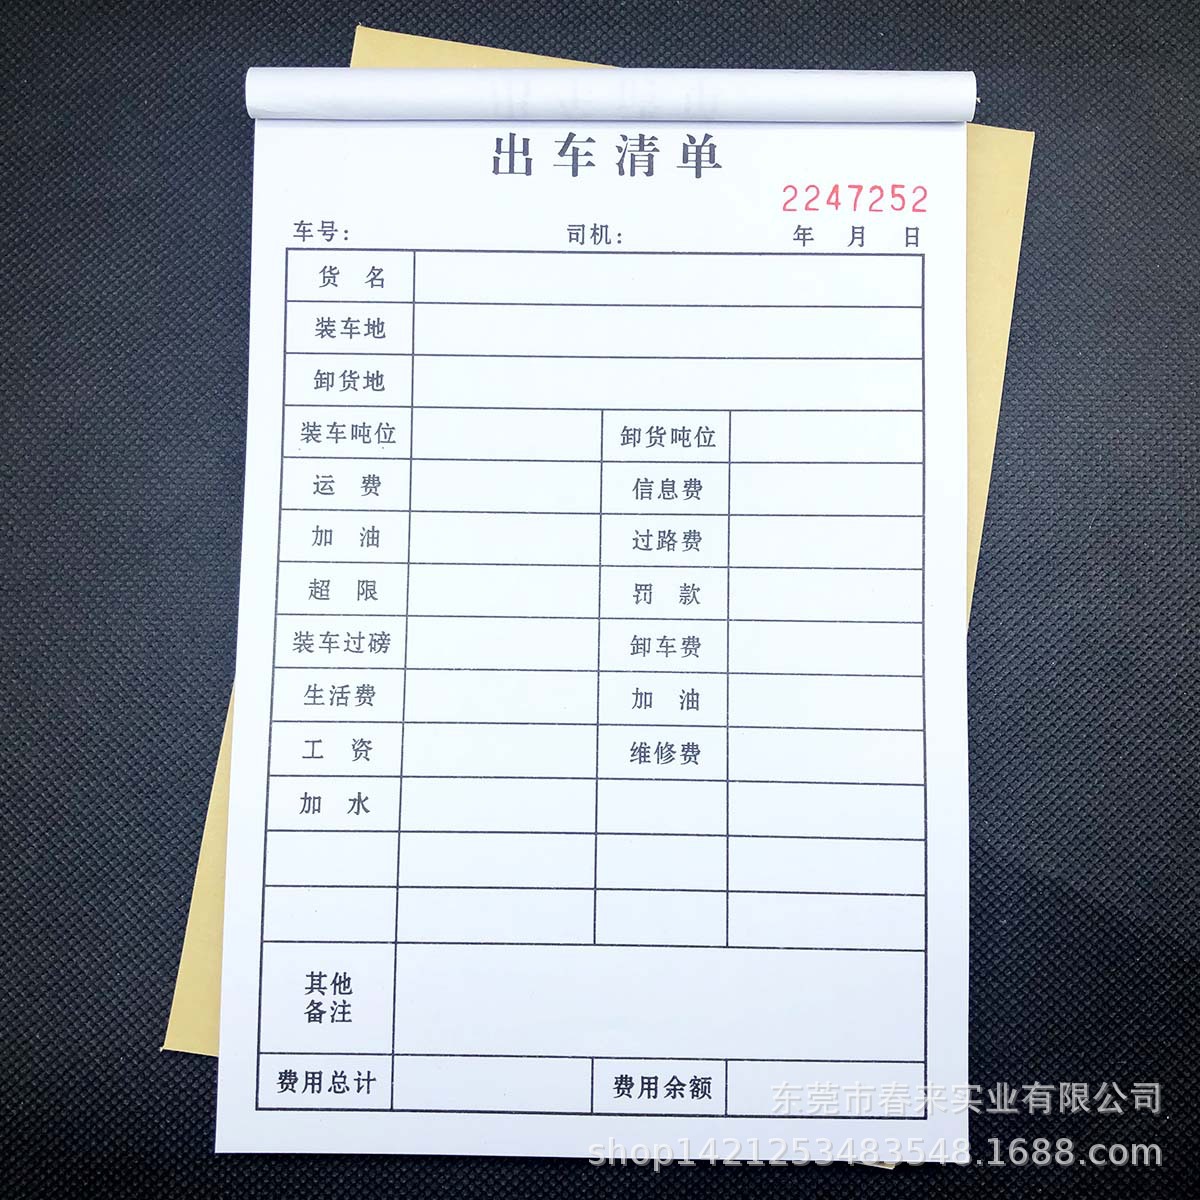 出车清单
2247252
车号： 司机： 年 月 日
货 名
装车地
卸货地
装车吨位 卸货吨位
运 费 信息费
加 油 过路费
超 限 罚 款
装车过磅 卸车费
生活费 加 油
工 资 维修费
加 水
其他
备注
费用总计 费用余额
东莞市春来实业有限公司
shop1421253483548.1688.com